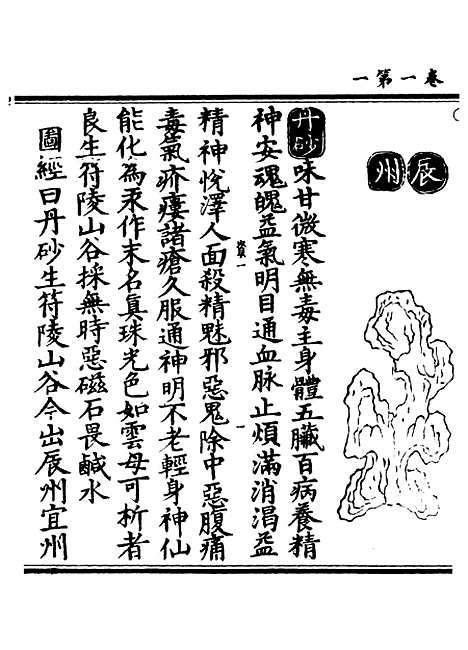 卷一第一
辰州
丹砂味甘微寒無毒主身體五臟百病養精
神安魂魄益氣明目通血脉止煩滿消渴益
精神悅澤人面殺精魅邪惡鬼除中惡腹痛
毒氣疥瘻諸瘡久服通神明不老輕身神仙
能化爲汞作末名眞珠光色如雲母可析者
良生符陵山谷採無時惡磁石畏鹹水
圖經曰丹砂生符陵山谷今出辰州宜州